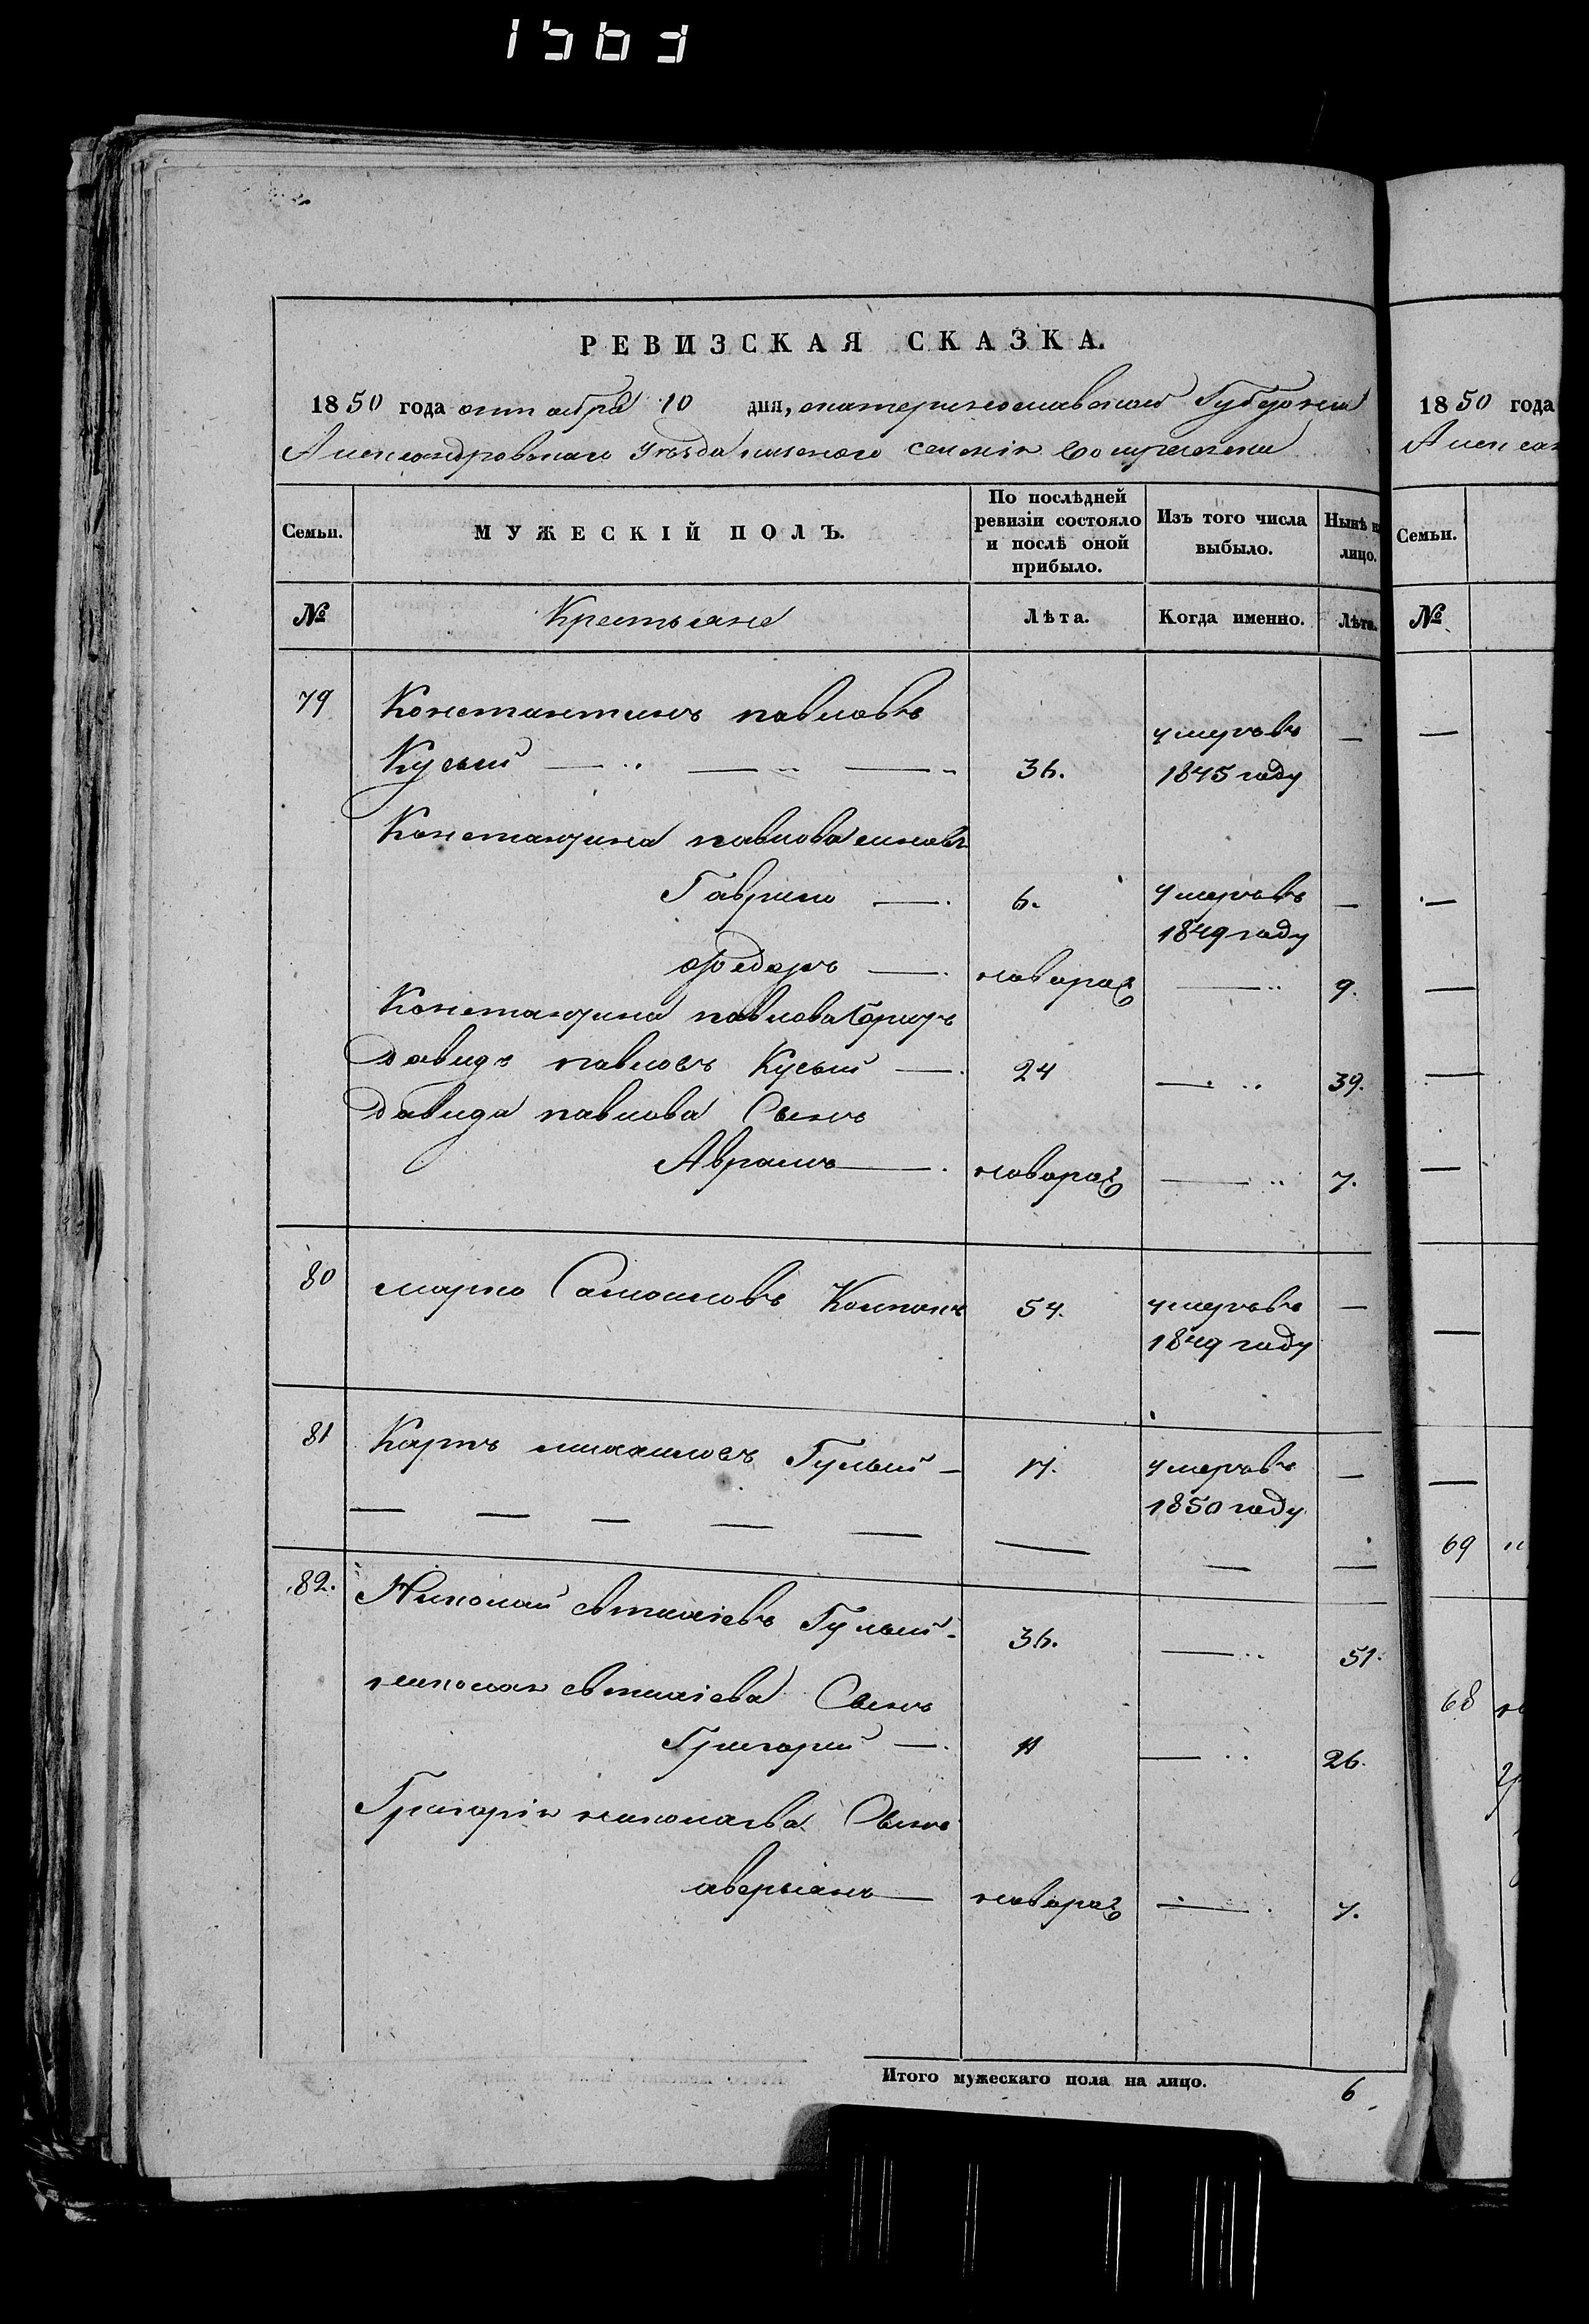 1563
РЕВИЗСКАЯ СКАЗКА.
1850 года октября 10 дня, екатеринославской Губернии
Александровскаго уезда казеного селения
Семьи.
МУЖЕСКІЙ ПОЛЪ.
По послѣдней ревизіи состояло и послѣ оной прибыло.
Изъ того числа выбыло.
Нынѣ на лицо.
№
Крестьяне
Лѣта.
Когда именно.
Лѣта.
79 Константинъ павловъ умеръ въ —
Кусый — — — 36. 1845 году
Константина павлова синовъ
Гаврило — 6. умеръ въ —
1849 году
Федоръ — новорож — 9.
Константина павлова братъ
Давидъ павловъ Кусый — 24 — 39.
Давида павлова Сынъ
Аврамъ — новорож — 7.
80 марко Самоиловъ 54. умеръ въ —
1849 году
81 Карпъ михаиловъ Гулый — 17. умеръ въ —
1850 году
82. Николай евтихіевъ Гулый 36. — 51.
николая евтихіева Сынъ
Григорий — 11 — 26.
Григорія николаева Сынъ
аверьянъ — новорож — 7.
Итого мужескаго пола на лицо. 6
1850 года
Алексан
Семьи.
№
69
68